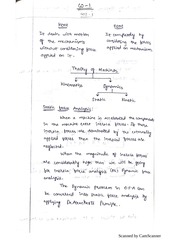 It deals with motion
of the mechanisms
without considering forces
applied on it.
It completely by
considering the forces
applied on mechanism
Theory of Machines
Kinematics
Dynamics
Static
Kinetic
Inertia force Analysis:-
When a machine is accelerated the component
in the machine exert inertia forces. If these
inertia forces are dominated by the externally
applied forces then the inertial forces are
neglected.
When the magnitude of inertia forces
are considerably high then we will be going
for inertia force analysis (or) Dynamic force
analysis.
The Dynamic problem in D.F.A can
be converted into static force analysis by
applying D-Alemberts Principle.
Scanned by CamScanner